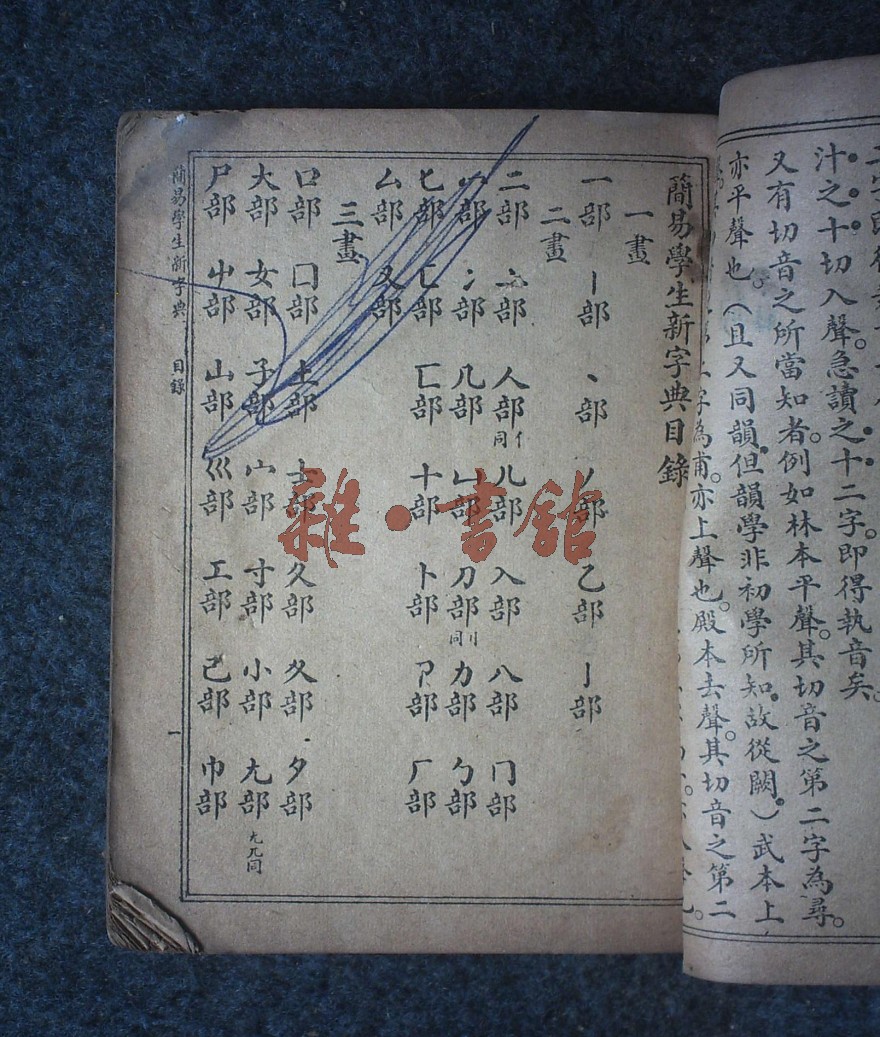 汁之十切入聲。急讀之十二字。即得執音矣。
又有切音之所當知者。例如林本平聲。其切音之第二字為尋。
亦平聲也。（且又同韻。但韻學非初學所知。故從闕。）武本上
字為甫。亦上聲也。殿本去聲。其切音之第二
簡易學生新字典目錄
一畫
一部 丨部 丶部 丿部 乙部 亅部
二畫
二部 亠部 人部 亻同 儿部 入部 八部 冂部
冖部 冫部 几部 凵部 刀部 刂同 力部 勹部
匕部 匚部 匸部 十部 卜部 卩部 厂部
厶部 又部
三畫
口部 囗部 土部 士部 夂部 夊部 夕部
大部 女部 子部 宀部 寸部 小部 尢部
尸部 屮部 山部 巛部 工部 己部 巾部
簡易學生新字典 目錄 一
雜·書館